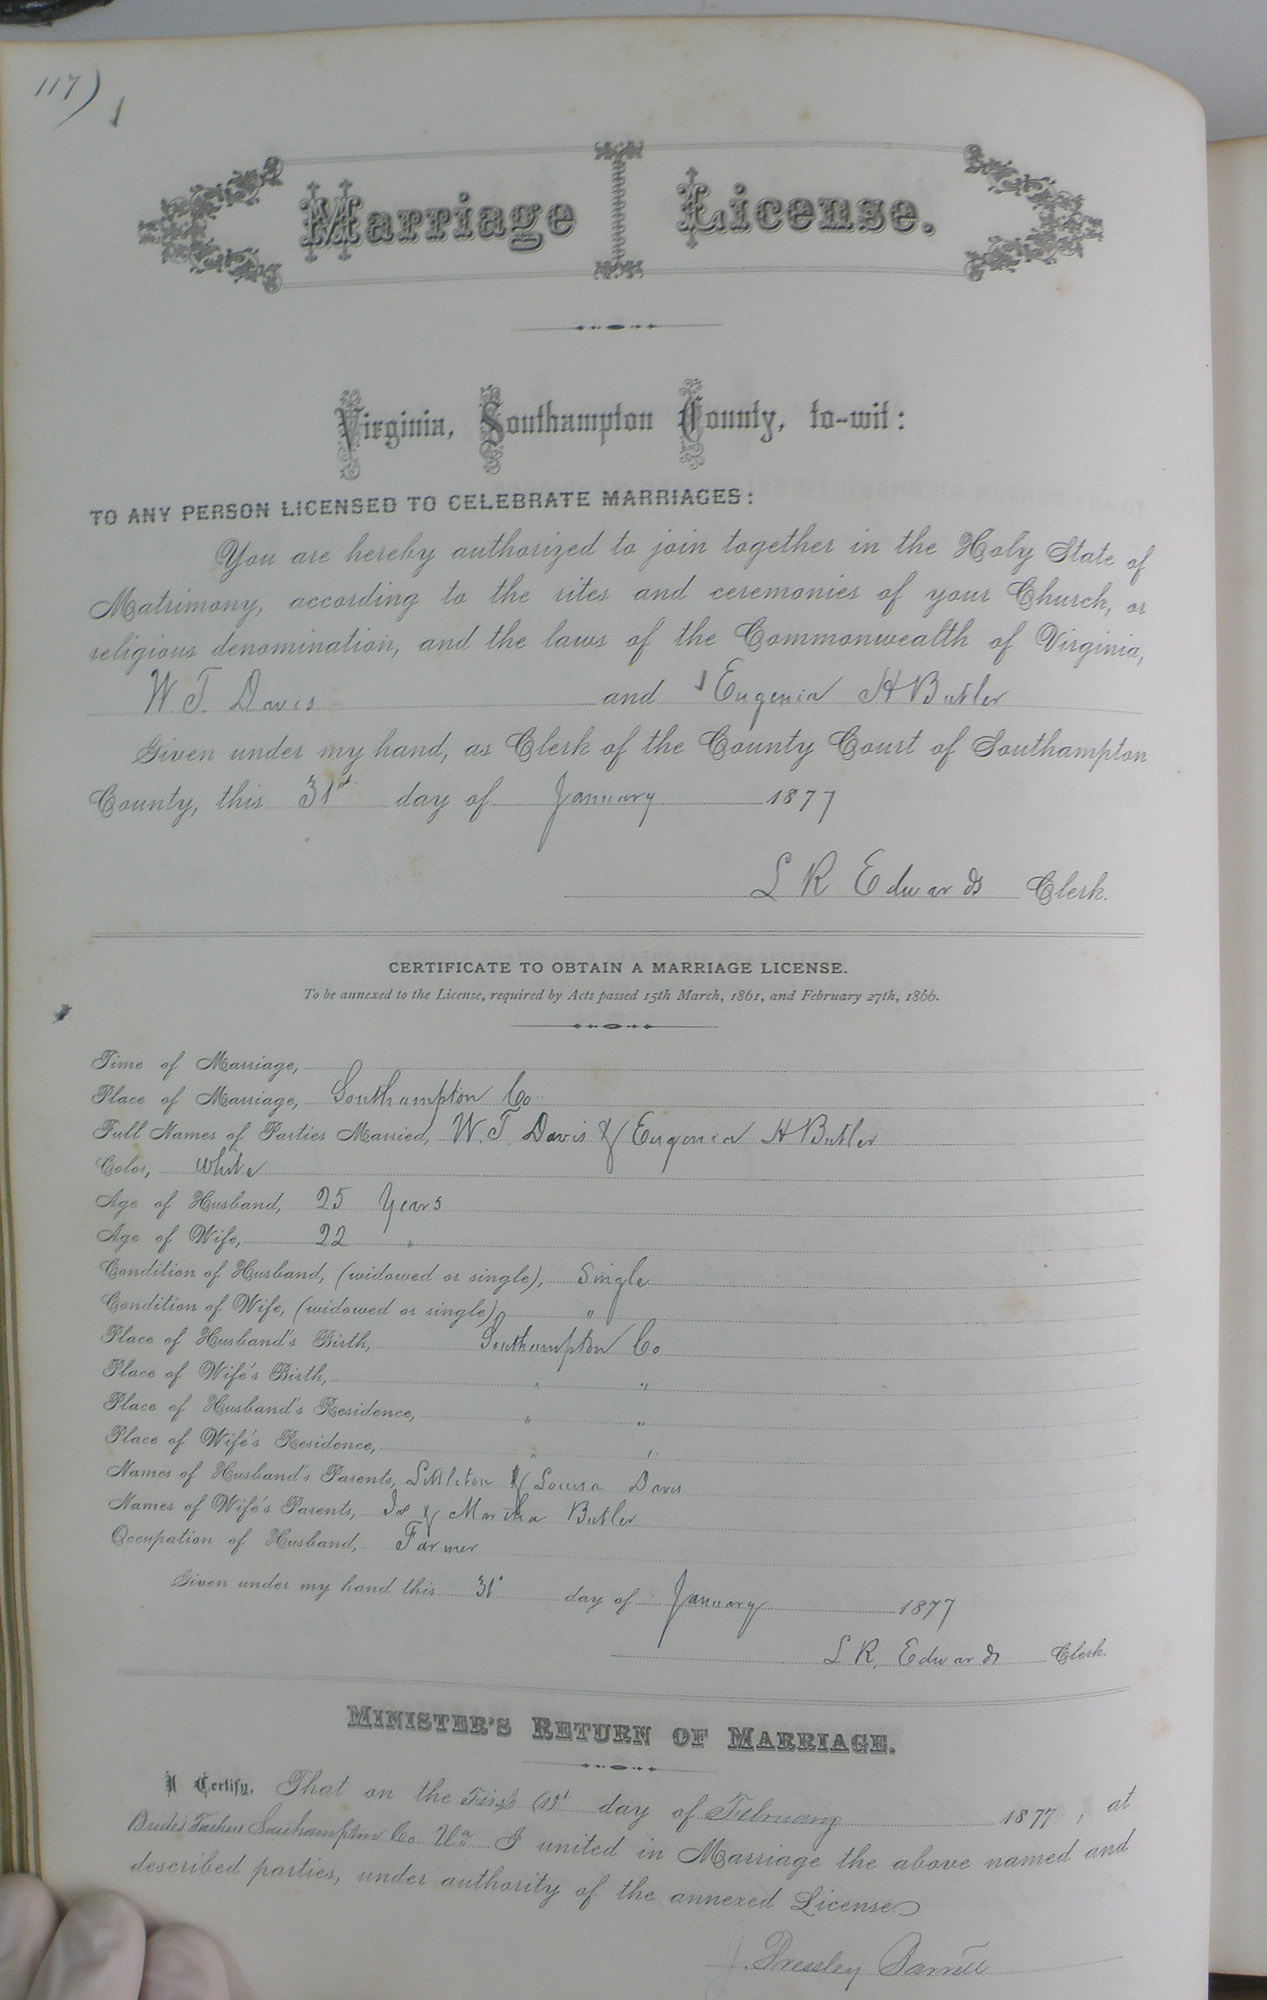 117)
Marriage License.
Virginia, Southampton County, to-wit:
TO ANY PERSON LICENSED TO CELEBRATE MARRIAGES:
You are hereby authorized to join together in the Holy State of
Matrimony, according to the rites and ceremonies of your Church, or
religious denomination, and the laws of the Commonwealth of Virginia,
W. T. Davis and Eugenia H Butler
Given under my hand, as Clerk of the County Court of Southampton
County, this 31st day of January 1877
L R Edwards Clerk.
CERTIFICATE TO OBTAIN A MARRIAGE LICENSE.
To be annexed to the License, required by Acts passed 15th March, 1861, and February 27th, 1866.
Time of Marriage,
Place of Marriage, Southampton Co
Full Names of Parties Married, W. T. Davis & Eugenia H Butler
Color, White
Age of Husband, 25 Years
Age of Wife, 22 "
Condition of Husband, (widowed or single), Single
Condition of Wife, (widowed or single), "
Place of Husband's Birth, Southampton Co
Place of Wife's Birth, " "
Place of Husband's Residence, " "
Place of Wife's Residence, " "
Names of Husband's Parents, Littleton & Louisa Davis
Names of Wife's Parents, & Martha Butler
Occupation of Husband, Farmer
Given under my hand this 31st day of January 1877
L R. Edwards Clerk.
MINISTER'S RETURN OF MARRIAGE.
I Certify, That on the First (1st day of February 1877, at
Brides Southampton Co. Va I united in Marriage the above named and
described parties, under authority of the annexed License
J. Pressley Barrett